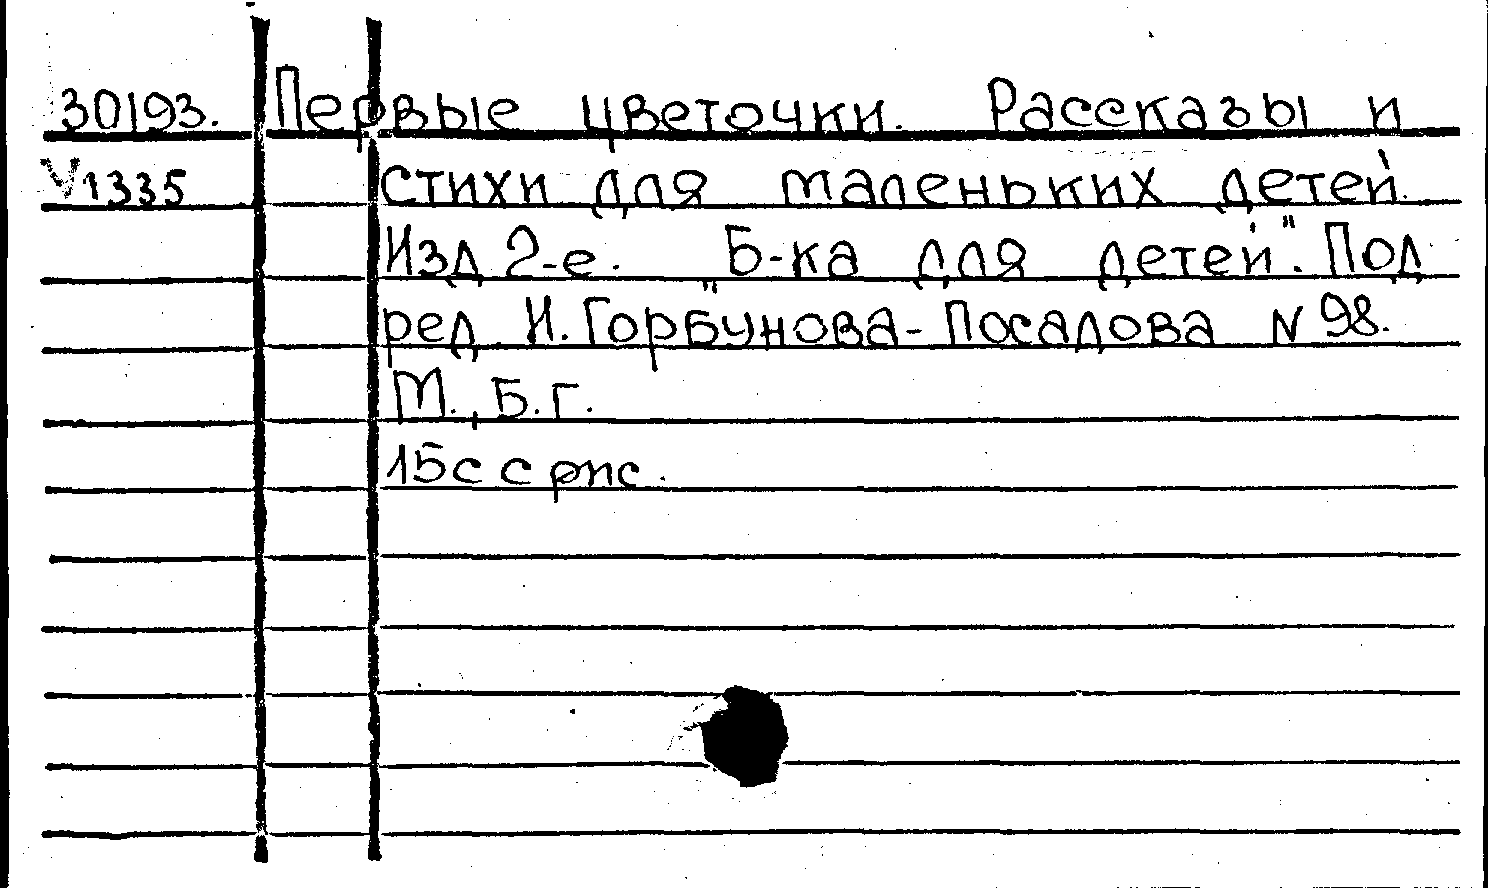 30193. Первые цветочки. Рассказы и
V1335 стихи для маленьких детей.
Изд 2-е. "Б-ка для детей". Под
ред И. Горбунова-Посадова N 98.
М., Б. г.
15с с рис.